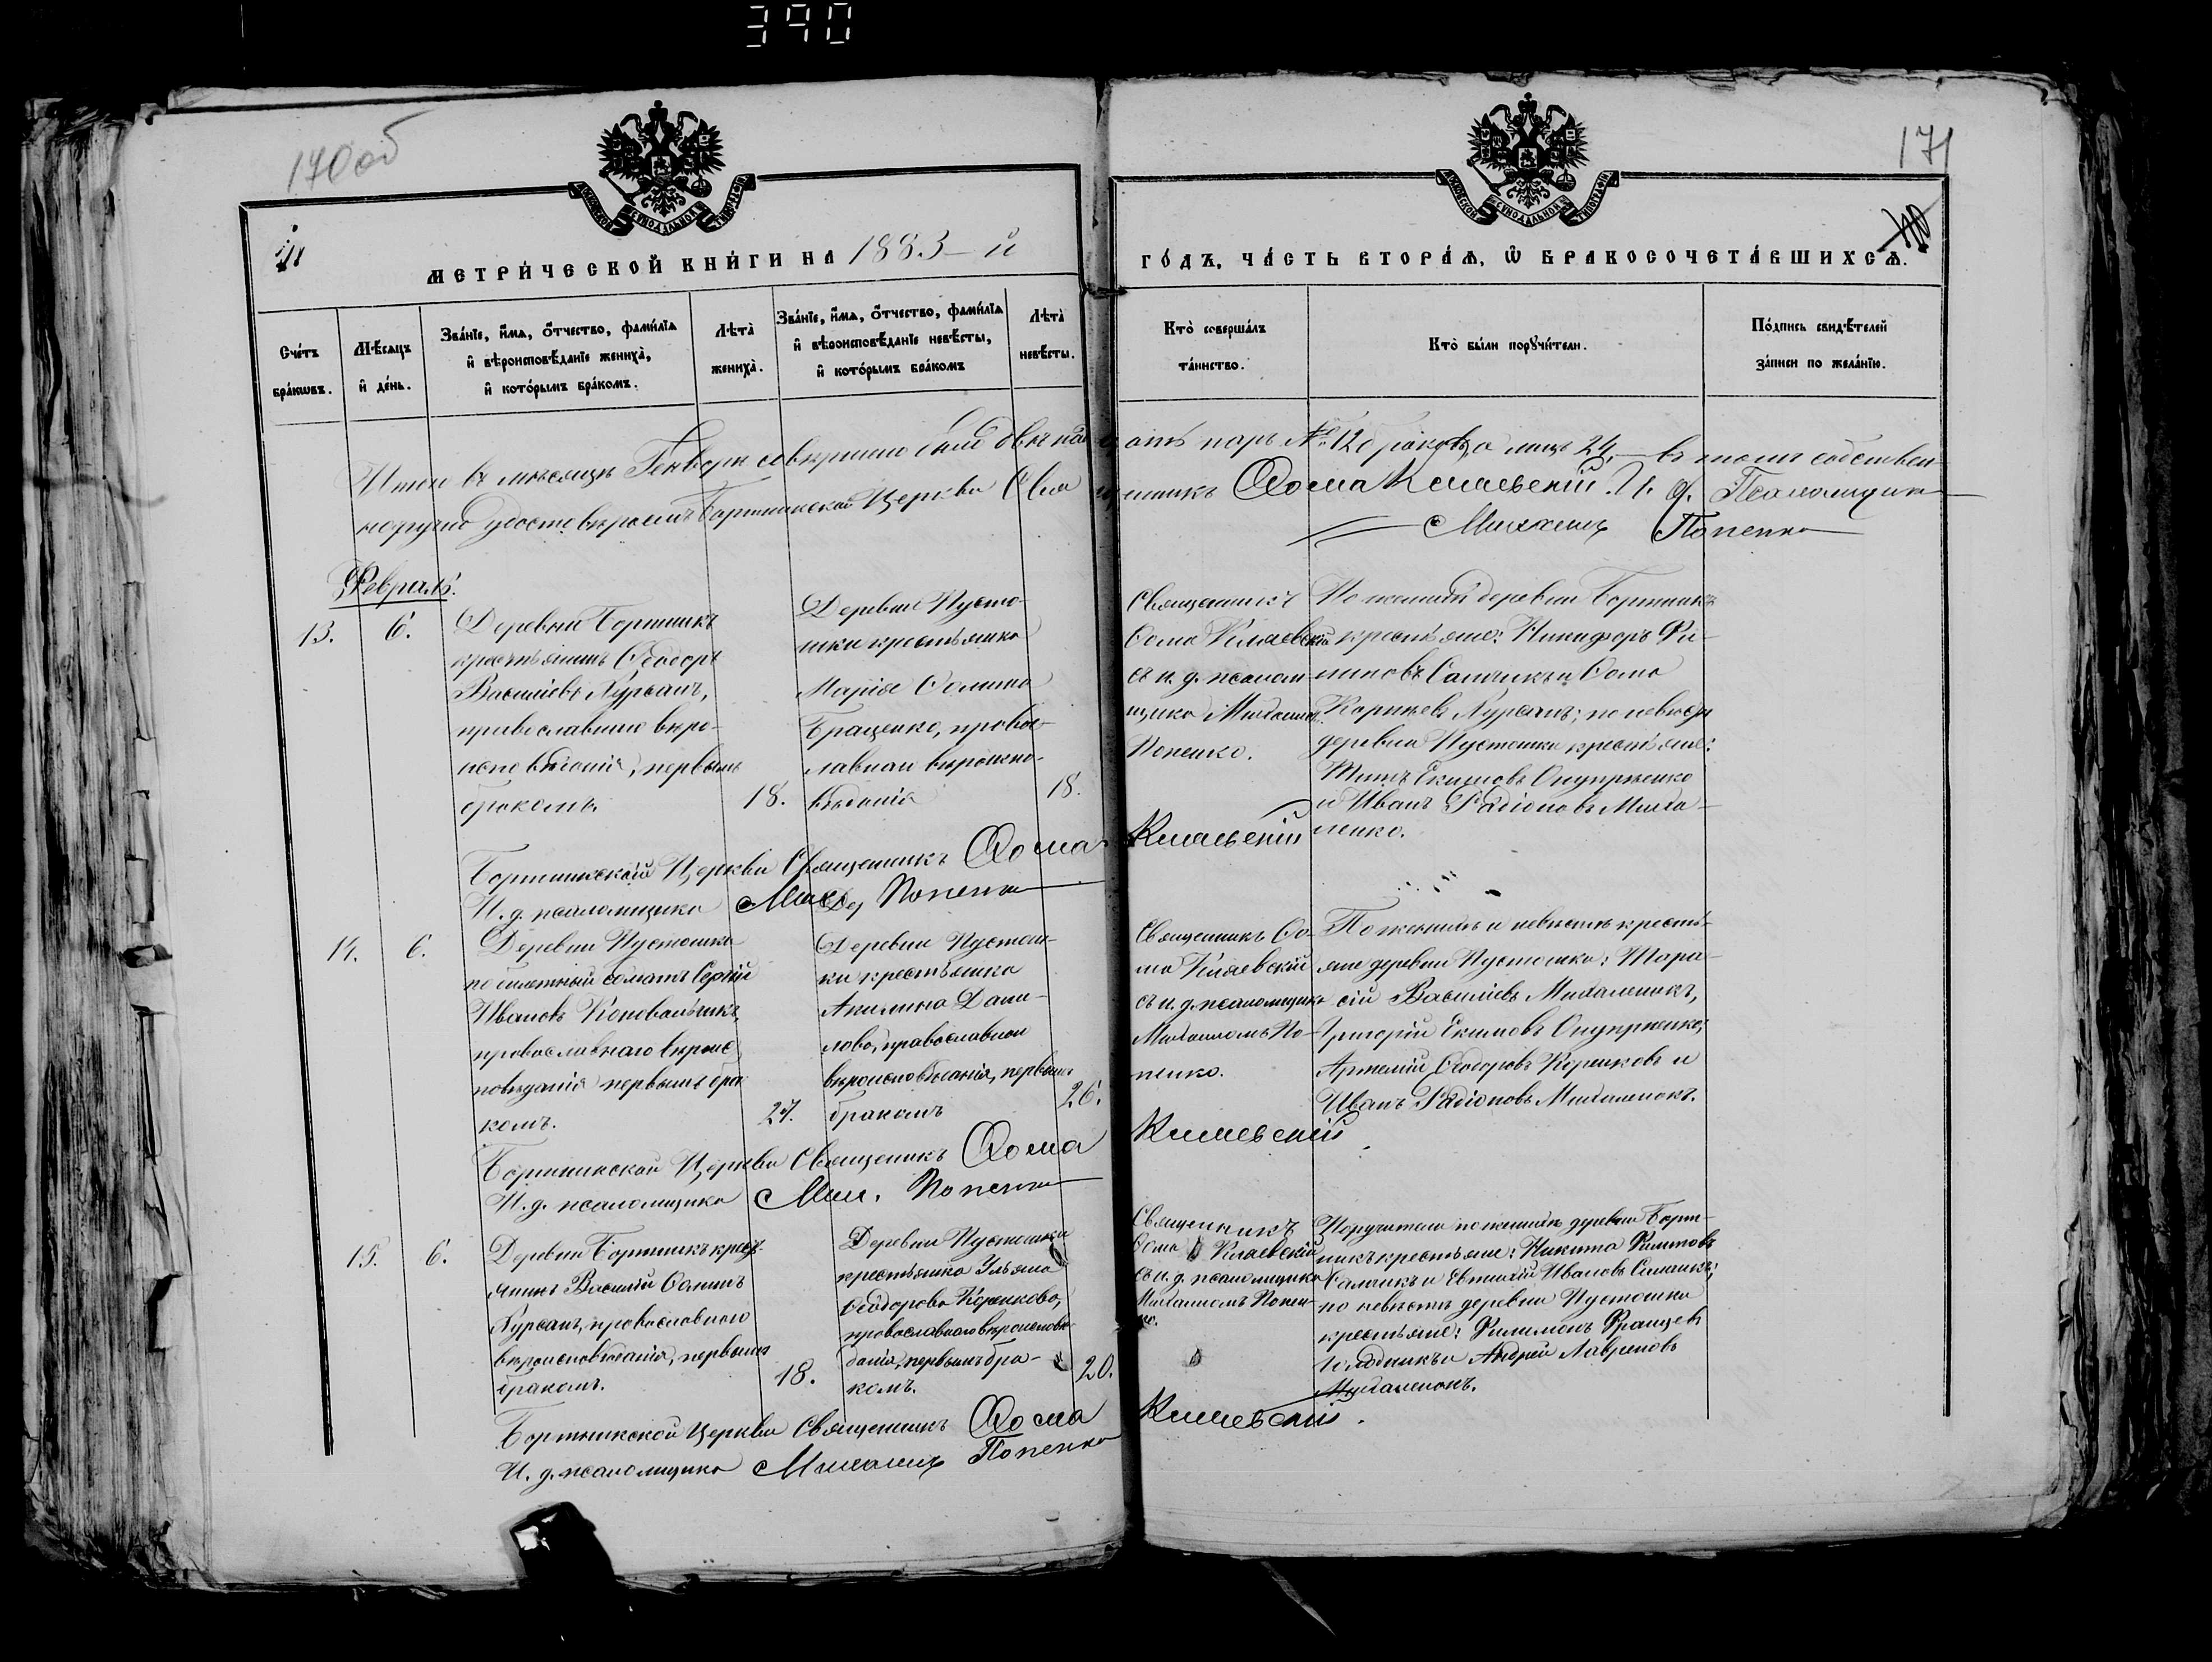 390
170 об
171
МЕТРИ́ЧЕСКОЙ КНИ́ГИ НА 1883-й
ГО́ДЪ, ЧА́СТЬ ВТОРА́Ѧ, Ѡ҆ БРАКОСОЧЕТА́ВШИХСѦ.
Сче́тъ бра́кѡвъ.
Мѣ́сѧцъ и҆ де́нь.
Зва́нїе, и҆́мѧ, ѻ҆́тчество, фамилїа
и҆ вѣроисповѣ́данїе жениха̀,
и҆ кото́рымъ бра́комъ.
Лѣта̀ жениха̀.
Зва́нїе, и҆́мѧ, ѻ҆́тчество, фамилїа
и҆ вѣроисповѣ́данїе невѣ́сты,
и҆ кото́рымъ бра́комъ
Лѣта̀ невѣ́сты.
Кто̀ соверша́лъ
та́инство.
Кто̀ бы́ли порꙋчи́тели.
По́дпись свидѣ́телей
за́писи по жела́нїю.
Итого въ мѣсяцѣ Генвари совершено было двѣнадцать паръ № 12 браковъ, а лицъ 24, въ томъ собствен-
норучно удостовѣряемъ Бортникской Церкви Священникъ Ѳома Киаевскій И. д. Псаломщика
Михаилъ Попенко
Февраль.
13.
6.
Деревни Бортникъ
крестьянинъ Ѳеодоръ
Василіевъ Курсанъ,
православнаго вѣро-
исповѣданія, первымъ
бракомъ.
18.
Деревни Пусто-
шки крестьянка
Марія Ѳомина
Бращенко, правос-
лавнаго вѣроиспо-
вѣданія
18.
Священникъ
Ѳома Киаевскій
съ и. д. псалом-
щика Михаиломъ
Попенко.
По женихѣ деревни Бортникъ
крестьяне: Никифоръ Фи-
липовъ Самчикъ и Ѳома
Корнѣевъ Курсанъ; по невѣстѣ
деревни Пустошки крестьяне:
Титъ Екимовъ Онупріенко
и Иванъ Радіоновъ Миха-
ленко.
Бортникской Церкви Священникъ Ѳома Киаевскій
И. д. псаломщика Мих. Попенко
14.
6.
Деревни Пустошки
билетный солдатъ Сергій
Ивановъ Коновальчикъ,
православнаго вѣроис-
повѣданія первымъ бра-
комъ.
27.
Деревни Пустош-
ки крестьянка
Акилина Дани-
лова, православнаго
вѣроисповѣданія, первымъ
бракомъ
26.
Священникъ Ѳо-
ма Киаевскій
съ и. д. псаломщика
Михаиломъ По-
пенко.
По женихѣ и невѣстѣ кресть-
яне деревни Пустошки: Тара-
сій Василіевъ Михаленокъ,
Григорій Екимовъ Онупріенко,
Артемій Ѳеодоровъ Корниковъ и
Иванъ Радіоновъ Михаленокъ.
Бортникской Церкви Священникъ Ѳома Киаевскій
И. д. псаломщика Мих. Попенко
15.
6.
Деревни Бортникъ кресть-
янинъ Василій Ѳоминъ
Курсанъ, православнаго
вѣроисповѣданія, первымъ
бракомъ.
18.
Деревни Пустошки
крестьянка Ульяна
Ѳеодорова Корникова,
православнаго вѣроисповѣ-
данія, первымъ бра-
комъ.
20.
Священникъ
Ѳома Киаевскій
съ и. д. псаломщика
Михаиломъ Попен-
ко.
Поручители по женихѣ деревни Борт-
никъ крестьяне: Никита Филиповъ
Самчикъ и Евтихій Ивановъ Симчикъ;
по невѣстѣ деревни Пустошки
крестьяне: Филимонъ Францев
и Андрей Лавреновъ
Михаленокъ.
Бортникской Церкви Священникъ Ѳома Киаевскій.
И. д. псаломщика Михаилъ Попенко